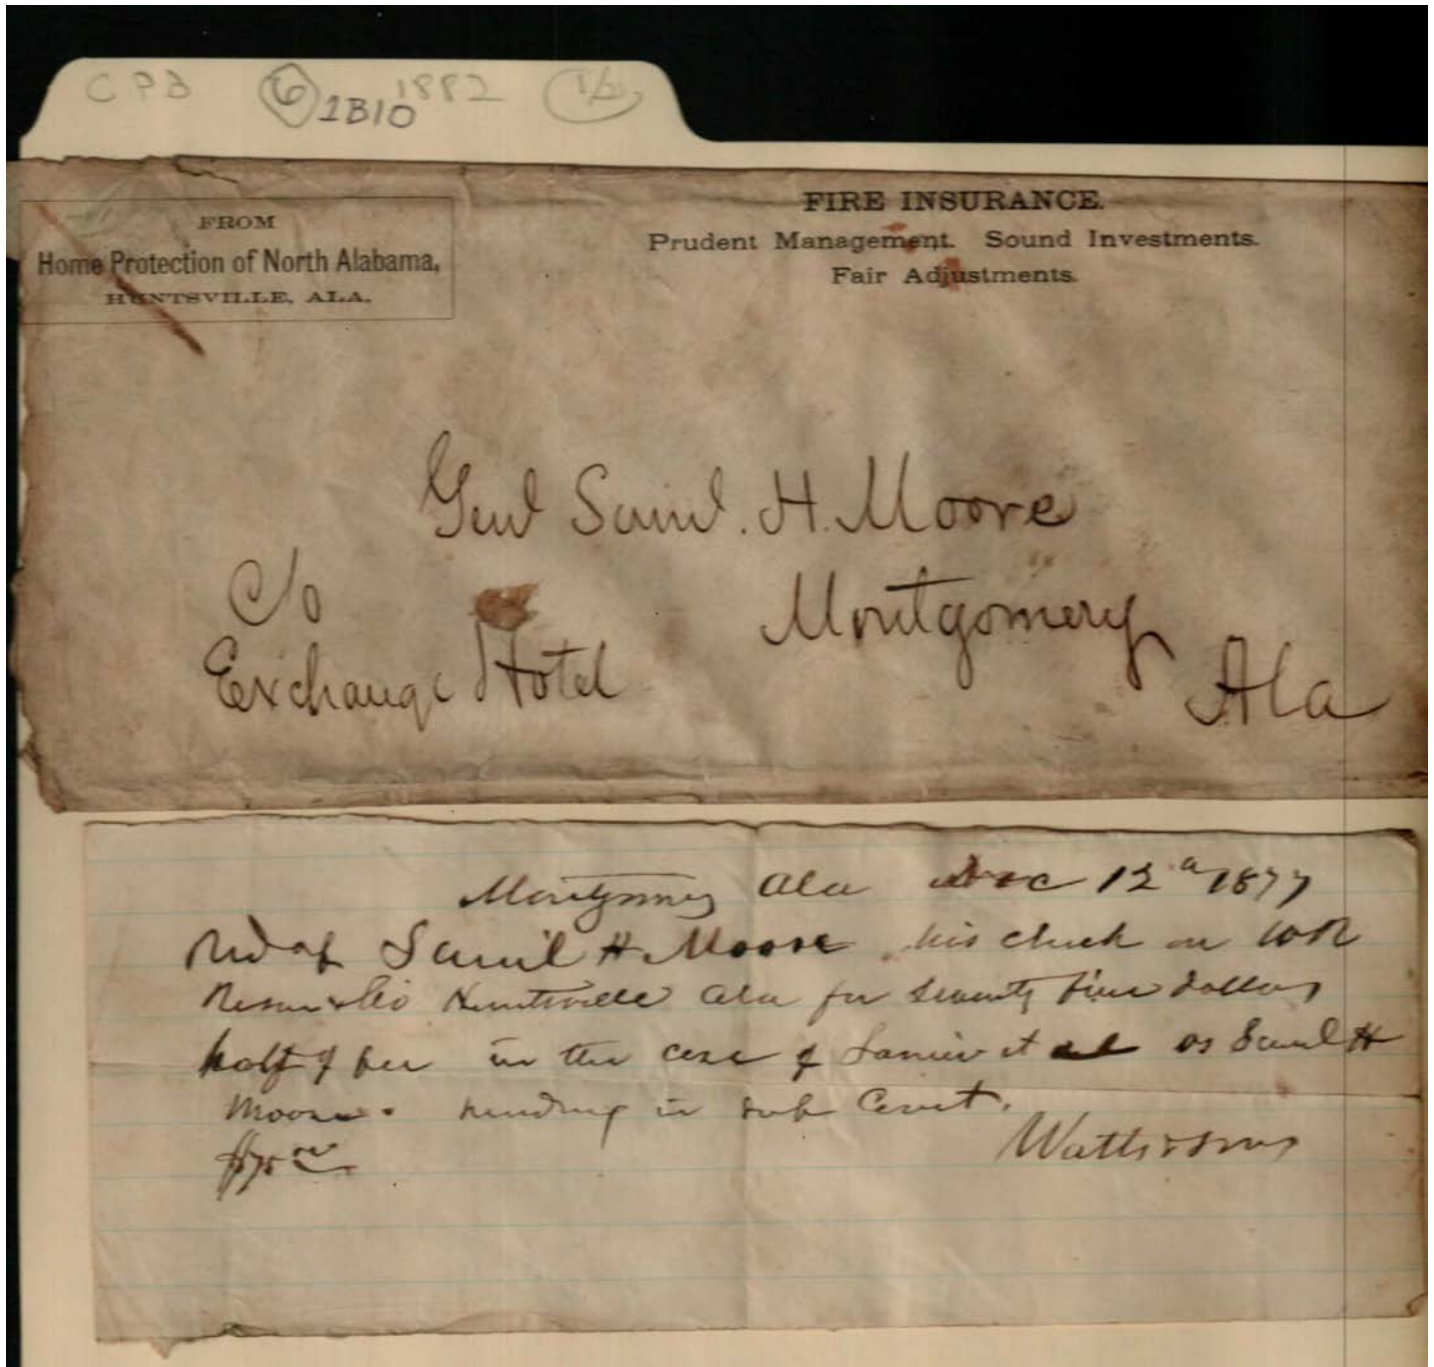 CPB 6 1882 1/2
1B10
FROM
Home Protection of North Alabama,
HUNTSVILLE, ALA.
FIRE INSURANCE.
Prudent Management. Sound Investments.
Fair Adjustments.
Genl Saml. H. Moore
C/o
Montgomery
Exchange Hotel
Ala
Montgomery Ala Dec 12 1877
Recd of Samil H Moore his check on
Huntsville Ala for seventy five dollars
half of fee in the case of Lanier et al vs Samil H
Moore. pending in sup Court.
$75
Watts & Sons